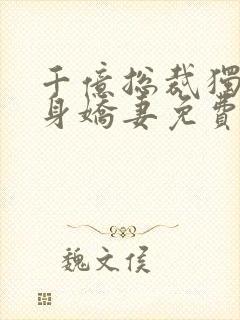 千億總裁獨
身嬌妻免費
魏文侯